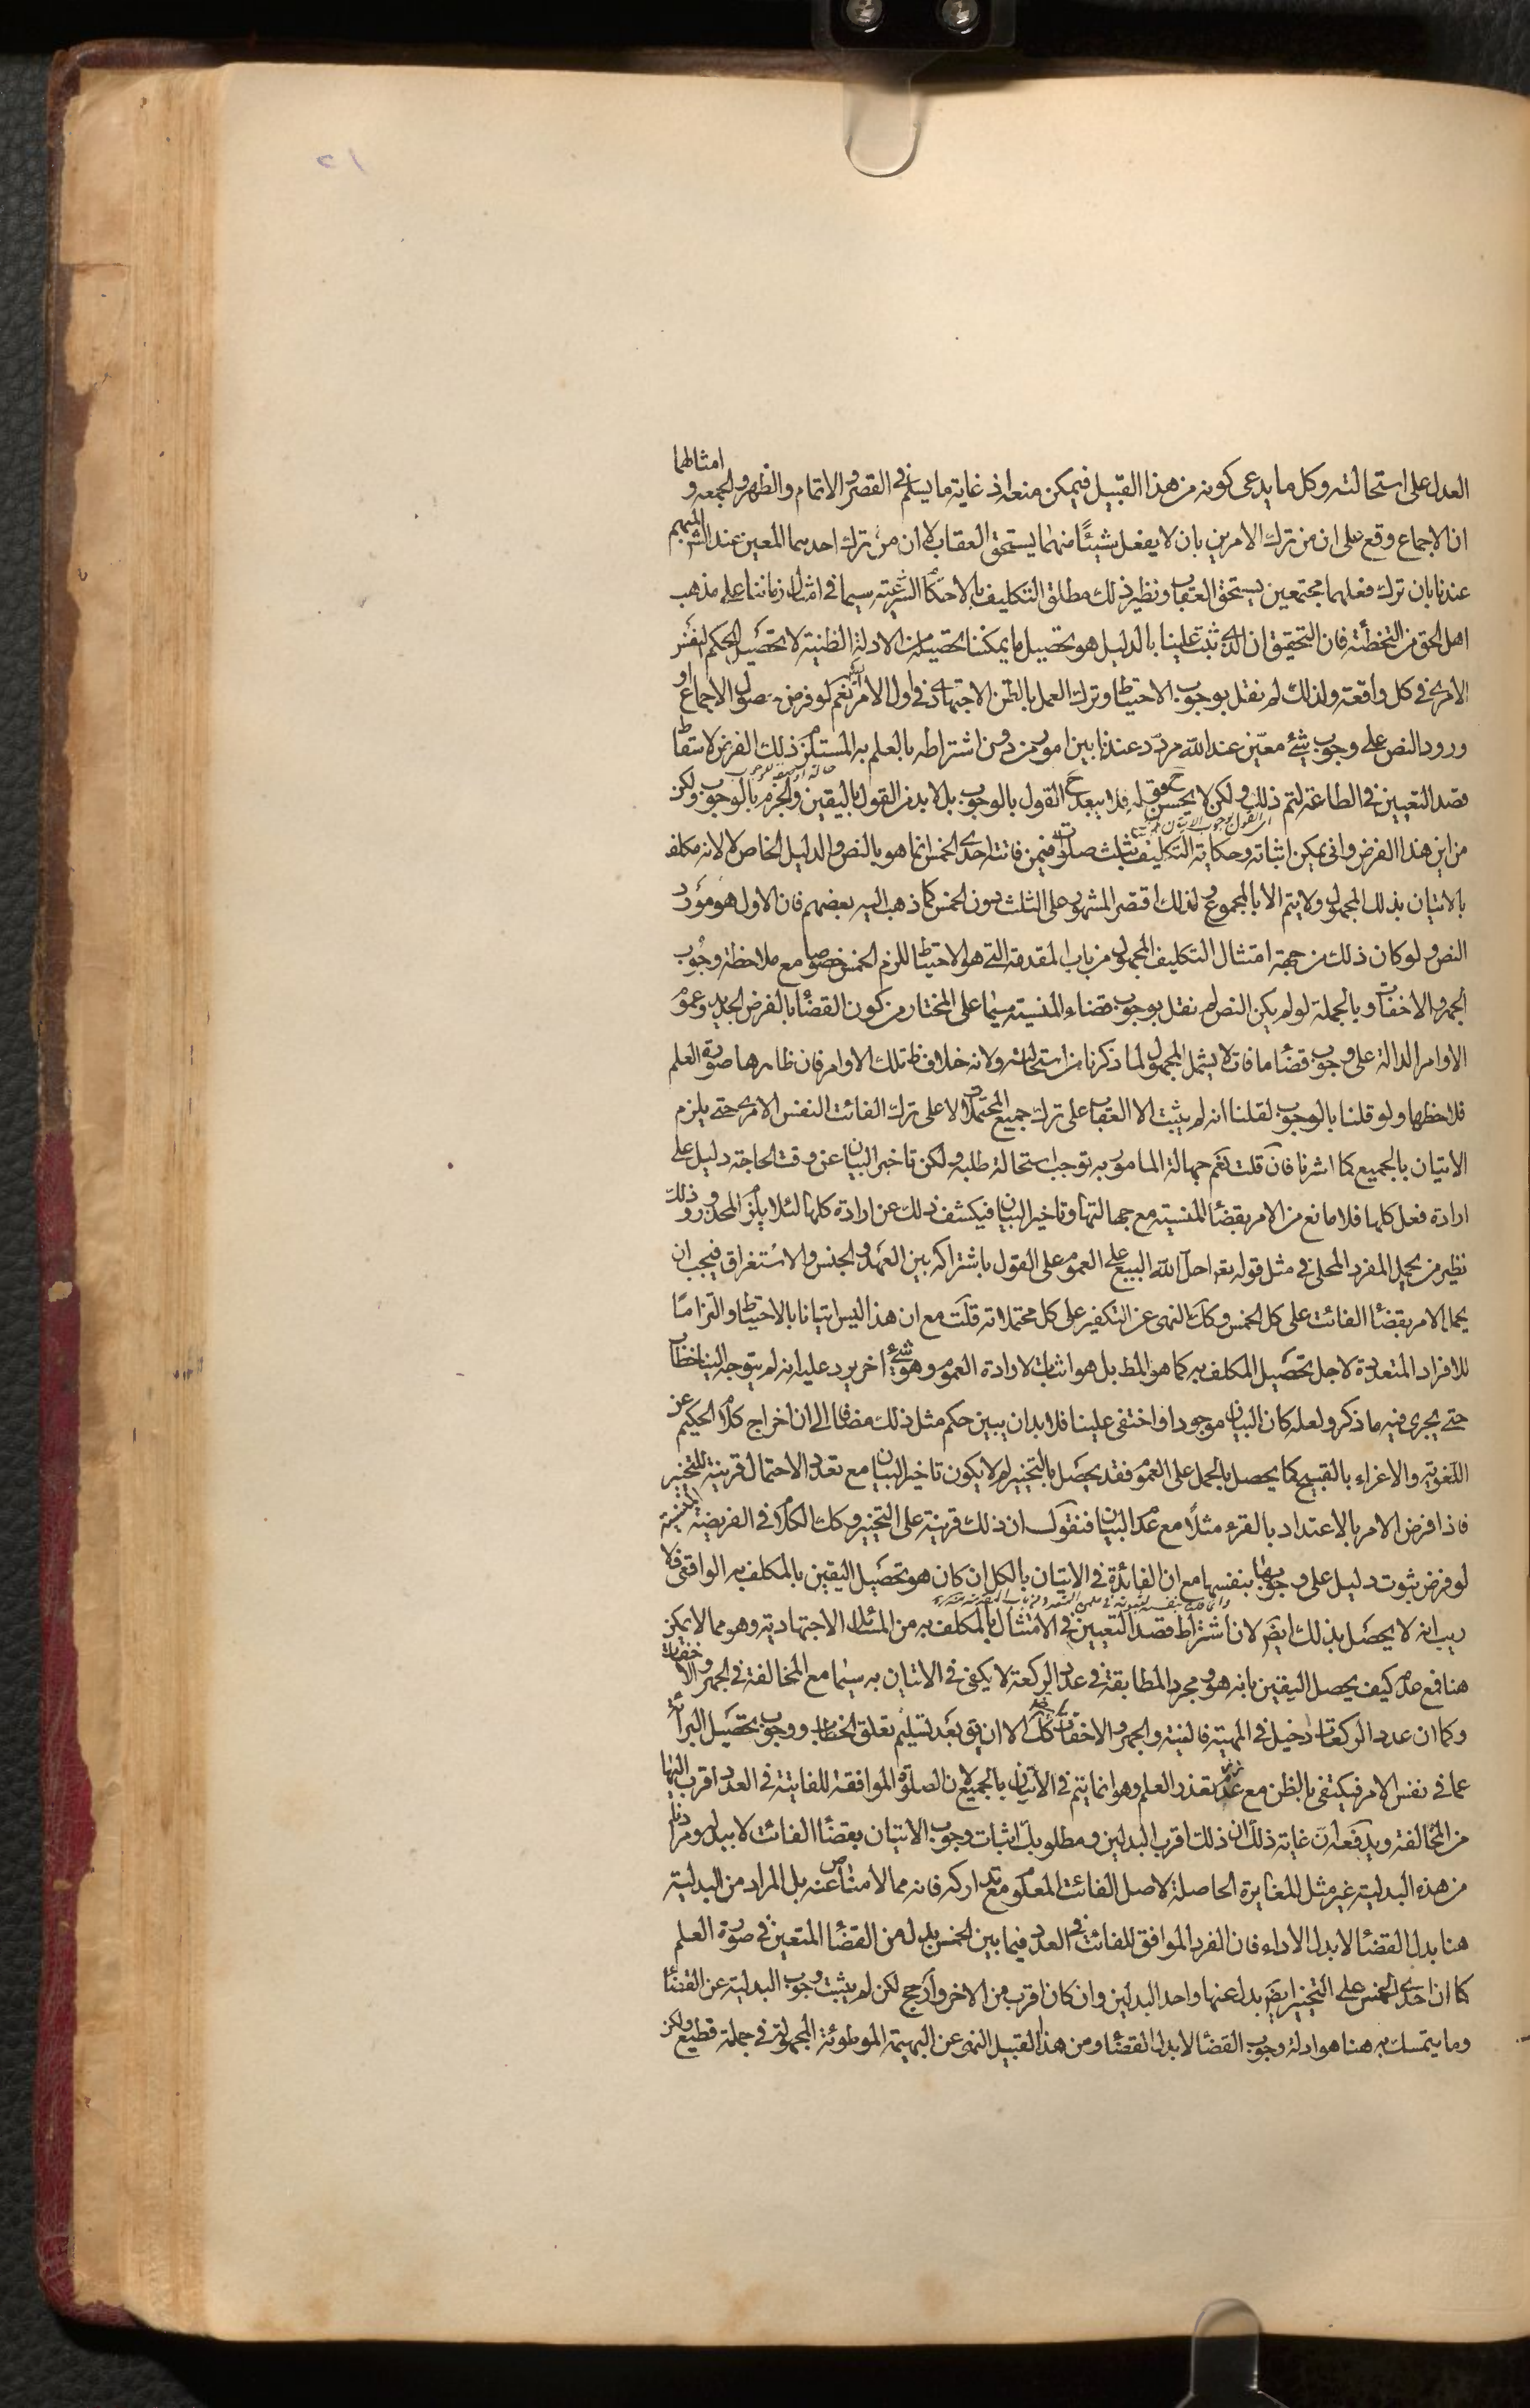 العدل على استحالته وكل ما يدعى كونه من هذا القبيل فيمكن منعه اذ غاية ما يسلم في القصر والاتمام والظهر والجمعه و امثالهما
ان الاجماع وقع على ان من ترك الامرين بان لا يفعل شيئًا منهما يستحق العقاب لا ان من ترك احدهما المعين عند الشارع المبهم
عندنا بان ترك فعلهما مجتمعين يستحق العقاب ونظير ذلك مطلق التكليف بالاحكام الشرعية سيما في امثال زماننا على مذهب
اهل الحق من التخطئة فان التحقيق ان الذي ثبت علينا بالدليل هو تحصيل ما يمكننا تحصيله من الادلة الظنية لا تحصيل الحكم النفس
الامرى في كل واقعة ولذلك لم نقل بوجوب الاحتياط وترك العمل بالظن الاجتهادى في اول الامر نعم لو فرض حصول الاجماع او
ورود النص على وجوب شئ معين عند الله مردد عندنا بين امور من دون اشتراطه بالعلم به المستلزم ذلك الفرض لاسقاط
قصد التعيين في الطاعة لتم ذلك ولكن لا يحسن قوله فلا يبعد ح القول بالوجوب بل لا بد من القول باليقين والجزم بالوجوب ولكن
من اين هذا الفرض وانى يمكن اثباته وحكاية التكليف بثلث صلوات فيمن فاتته احدى الخمس انما هو بالنص والدليل الخاص لا لانه مكلف
بالاتيان بذلك المجهول ولا يتم الا بالمجموع ولذلك اقتصر المشهور على الثلث دون الخمس كما ذهب اليه بعضهم فان الاول هو مورد
النص ولو كان ذلك من جهة امتثال التكليف المجهول من باب المقدمة التى هو الاحتياط للزم الخمس خصوصا مع ملاحظة وجوب
الجهر والاخفات وبالجملة لو لم يكن النص لم نقل بوجوب قضاء المنسية سيّما على المختار من كون القضاء بالفرض الجديد وعموم
الاوامر الدالة على وجوب قضاء ما فات لا يشمل المجهول لما ذكرنا من استحالته ولانه خلاف ظ تلك الاوامر فان ظاهرها صورة العلم
فلاحظها ولو قلنا بالوجوب لقلنا انه لم يثبت الا العقاب على ترك جميع المحتملات لا على ترك الفائت النفس الامرى حتى يلزم
الاتيان بالجميع كما اشرنا فان قلت نعم جهالة المامور به توجب استحالة طلبه ولكن تاخير البيان عن وقت الحاجة دليل على
ارادة فعل كلها فلا مانع من الامر بقضاء المنسية مع جهالتها وتاخير البيان فيكشف ذلك عن ارادة كلها لئلا يلزم المحذور وذلك
نظير من يحمل المفرد المحلى في مثل قوله تعم احل الله البيع على العموم على القول باشتراكه بين العهد والجنس والاستغراق فيجب ان
يحمل الامر بقضاء الفائت على كل الخمس وكك النهى عن التكفير على كل محتملاته قلت مع ان هذا ليس اتيانا بالاحتياط والتزامًا
للافراد المتعددة لاجل تحصيل المكلف به كما هو المط بل هو اثبات لارادة العموم وهو شئ اخر يرد عليه انه لم يتوجه الينا خطاب
حتى يجرى فيه ما ذكر ولعله كان البيان موجودا واختفى علينا فلا بد ان يبين حكم مثل ذلك مضافا الى ان اخراج كلام الحكيم عن
اللغوية والاغراء بالقبيح كما يحصل بالحمل على العموم فقد يحصل بالتخيير لم لا يكون تاخير البيان مع تعدد الاحتمال قرينة للتخيير
فاذا فرض الامر بالاعتداد بالقرء مثلًا مع عدم البيان فنقول ان ذلك قرينة على التخيير وكك الكلام في الفريضة المنسية
لو فرض ثبوت دليل على وجوبها بنفسها مع ان الفائدة في الاتيان بالكل ان كان هو تحصيل اليقين بالمكلف به الواقعى فلا
ريب انه لا يحصل بذلك ايض لان اشتراط قصد التعيين في الامتثال بالمكلف به من المسائل الاجتهادية وهو مما لا يمكن
هنا فمع عدمه كيف يحصل اليقين بانه هو ومجرد المطابقة في عدد الركعة لا يكفى في الاتيان به سيّما مع المخالفة في الجهر والاخفات
وكما ان عدد الركعات دخيل في المهية فالنية والجهر والاخفات كك الا ان يق بعد تسليم تعلق الخطاب ووجوب تحصيل البرائة
عما في نفس الامر فيكتفى بالظن مع تعذر العلم وهو انما يتم في الاتيان بالجميع لان الصلوة الموافقة للفايتة في العدد اقرب اليها
من المخالفة ويدفعه ان غاية ذلك ان ذلك اقرب البدلين ومطلوبك اثبات وجوب الاتيان بقضاء الفائت لا ببدله ومرادنا
من هذه البدلية غير مثل المغايرة الحاصلة لاصل الفائت المعلوم مع تداركه فانه مما لا مناص عنه بل المراد من البدلية
هنا بدل القضاء لا بدل الاداء فان الفرد الموافق للفائت في العدد فيما بين الخمس بدل من القضاء المتعين في صورة العلم
كما ان احدى الخمس على التخيير ايض بدل عنها واحد البدلين وان كان اقرب من الاخر وارجح لكن لم يثبت وجوب البدلية عن القضاء
وما يتمسك به هنا هو ادلة وجوب القضاء لا بدل القضاء ومن هذا القبيل النهى عن البهيمة الموطوئة المجهولة في جملة قطيع ولكن